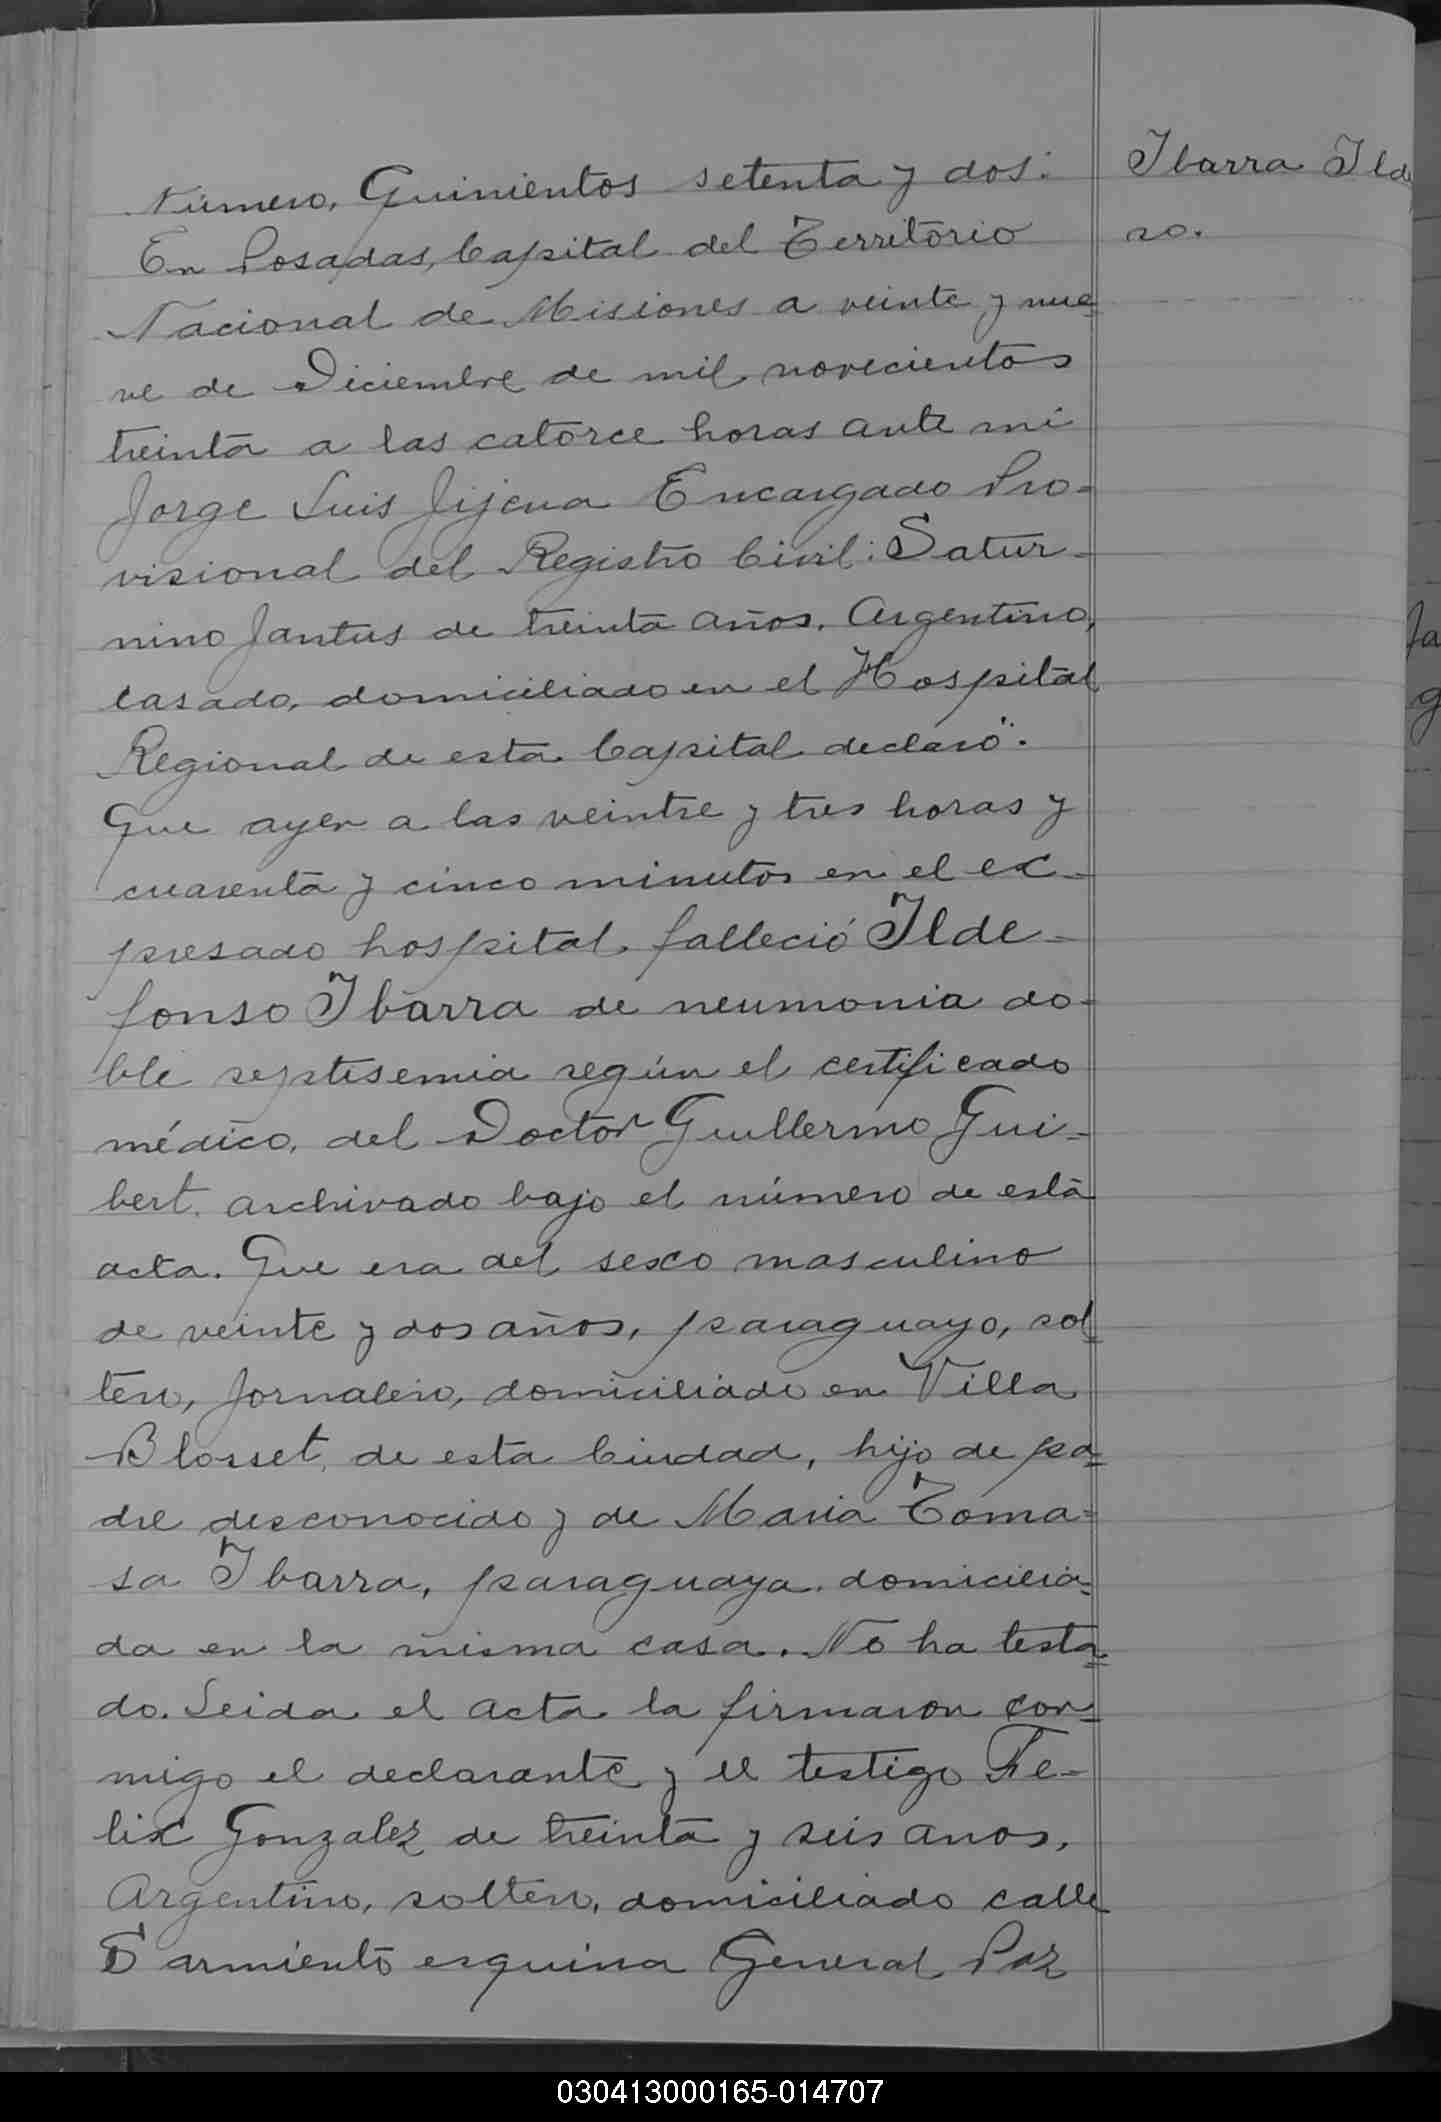 Número, Quinientos setenta y dos:
En Posadas, Capital del Territorio
Nacional de Misiones a veinte y nue=
ve de Diciembre de mil novecientos
treinta a las catorce horas ante mi
Jorge Luis Jijena Encargado Pro-
visional del Registro Civil: Satur-
nino Jantus de treinta años, Argentino,
casado, domiciliado en el Hospital
Regional de esta Capital declaró:
Que ayer a las veintre y tres horas y
cuarenta y cinco minutos en el ex-
presado hospital falleció Ilde-
fonso Ibarra de neumonia do-
ble septisemia según el certificado
médico, del Doctor Guillermo Gui-
bert archivado bajo el número de esta
acta. Que era del sexo masculino
de veinte y dos años, paraguayo, sol
tero, Jornalero, domiciliado en Villa
Blosset, de esta Ciudad, hijo de pa=
dre desconocido y de Maria Toma=
sa Ibarra, paraguaya, domicilia=
da en la misma casa. No ha testa=
do. Leida el acta la firmaron con=
migo el declarante y el testigo Fe-
lix Gonzalez de treinta y seis anos,
Argentino, soltero, domiciliado calle
Sarmiento esquina General Paz
Ibarra Ilde
so.
030413000165-014707